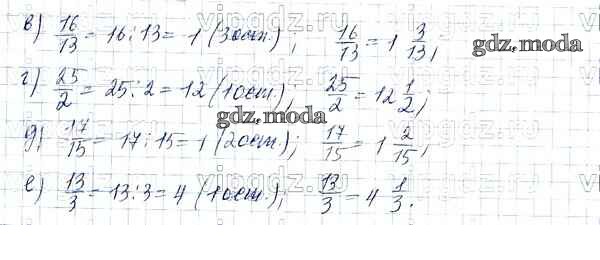 в) 16/13 = 16 : 13 = 1 (3 ост.); 16/13 = 1 3/13;
г) 25/2 = 25 : 2 = 12 (1 ост.); 25/2 = 12 1/2;
д) 17/15 = 17 : 15 = 1 (2 ост.); 17/15 = 1 2/15;
е) 13/3 = 13 : 3 = 4 (1 ост.); 13/3 = 4 1/3.
gdz.moda
gdz.moda